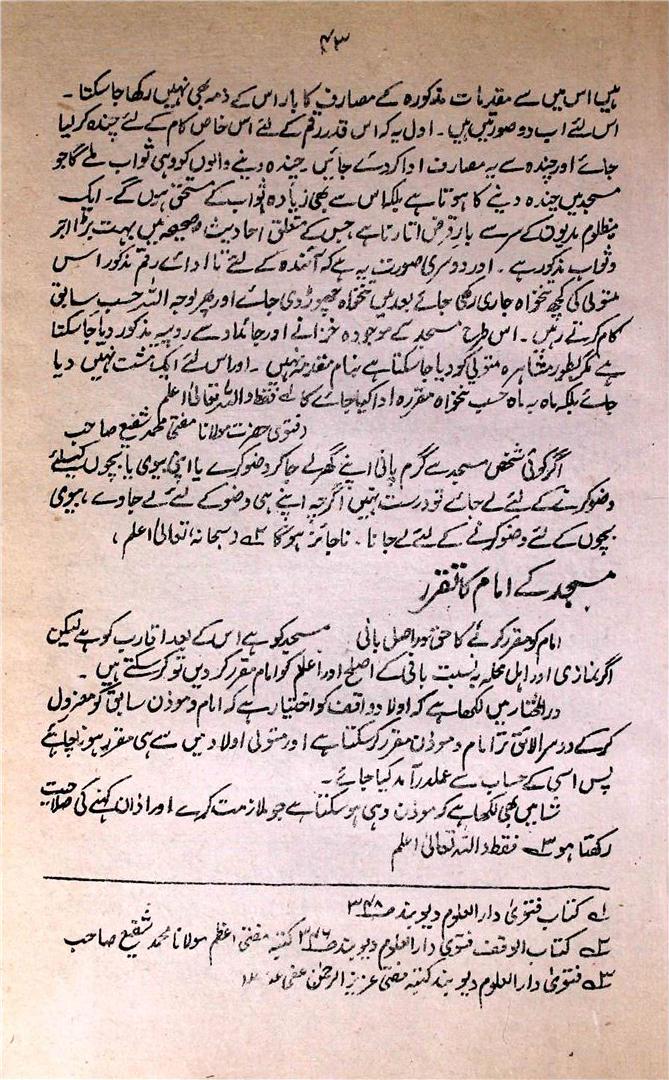 ۴۳
ہیں اس میں سے مقدمات مذکورہ کے مصارف کا بار اس کے ذمہ بھی نہیں رکھا جا سکتا ۔
اس لئے اب دو صورتیں ہیں ۔ اول یہ کہ اس قدر رقم کے لئے اس خاص کام کے لئے چندہ کر لیا
جائے اور چندہ سے یہ مصارف ادا کر دئے جائیں ۔ چندہ دینے والوں کو وہی ثواب ملے گا جو
مسجد میں چندہ دینے کا ہوتا ہے بلکہ اس سے بھی زیادہ ثواب کے مستحق ہوں گے ۔ ایک
مظلوم مدیون کے سر سے بار قرض اتارنا ہے جس کے متعلق احادیث صحیحہ میں بہت بڑا اجر
و ثواب مذکور ہے ۔ اور دوسری صورت یہ ہے کہ آئندہ کے لئے تا ادائے رقم مذکور اس
متولی کی کچھ تنخواہ جاری رکھی جائے بعد میں تنخواہ چھوڑ دی جائے اور پھر لوجہ اللہ حسب سابق
کام کرتے رہیں ۔ اس طرح مسجد کے موجودہ خزانے اور جائداد سے روپیہ مذکور دیا جا سکتا
ہے مگر بطور مشاہرہ متولی کو دیا جا سکتا ہے بنام مقدمہ نہیں ۔ اور اس لئے ایک مشت نہیں دیا
جائے بلکہ ماہ بہ ماہ حسب تنخواہ مقررہ ادا کیا جائے گا ۱ے فقط واللہ تعالیٰ اعلم
(فتویٰ حضرت مولانا مفتی محمد شفیع صاحب
اگر کوئی شخص مسجد سے گرم پانی اپنے گھر لے جا کر وضو کرے یا اپنی بیوی یا بچوں کیلئے
وضو کرنے کے لئے لے جائے تو درست نہیں اگرچہ اپنے ہی وضو کے لئے لے جاوے ، بیوی
بچوں کے لئے وضو کرنے کے لئے لے جانا ۔ ناجائز ہوگا ۲ے و سبحانہ، تعالیٰ اعلم ،
مسجد کے امام کا تقرر
امام کو مقرر کرنے کا حق اصلی بانی مسجد کو ہے اس کے بعد اقارب کو ہے لیکن
اگر نمازی اور اہل محلہ بہ نسبت بانی کے اصلح اور اعلم کو امام مقرر کر دیں تو کر سکتے ہیں ۔
در المختار میں لکھا ہے کہ اولاد واقف کو اختیار ہے کہ امام و موذن سابق کو معزول
کرکے دوسرا لائق تر امام و موذن مقرر کر سکتا ہے اور متولی اولاد میں سے ہی مقرر ہونا چاہئے
پس اسی کے حساب سے عملدرآمد کیا جائے ۔
شامی میں بھی لکھا ہے کہ موذن وہی ہو سکتا ہے جو ملازمت کرے اور اذان کہنے کی صلاحیت
رکھتا ہو ۳ے فقط واللہ تعالیٰ اعلم
۱ے کتاب فتویٰ دار العلوم دیوبند صـ ۳۴۸
۲ے کتاب الوقف فتویٰ دار العلوم دیوبند صـ ۳۷۶ کتبہ مفتی اعظم مولانا محمد شفیع صاحب
۳ے فتویٰ دار العلوم دیوبند کتبہ مفتی عزیز الرحمٰن عفی عنہ